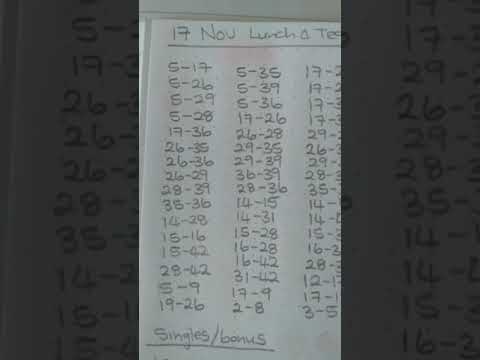 17 Nov Lunch & Tea
5-17 5-35 17-2
5-26 5-39 17-
5-29 5-36 17-3
5-28 17-26 17-3
17-36 26-28 29-2
26-35 29-35 26-3
26-36 29-39 29-
26-29 36-39 28-
28-39 28-36 35-
35-36 14-15 14-
14-28 14-31 14-
15-16 15-28 15-3
15-42 16-28 16-3
28-42 16-42 28-3
5-9 31-42 12-1
19-26 17-9 17-1
2-8 3-5
Singles/bonus